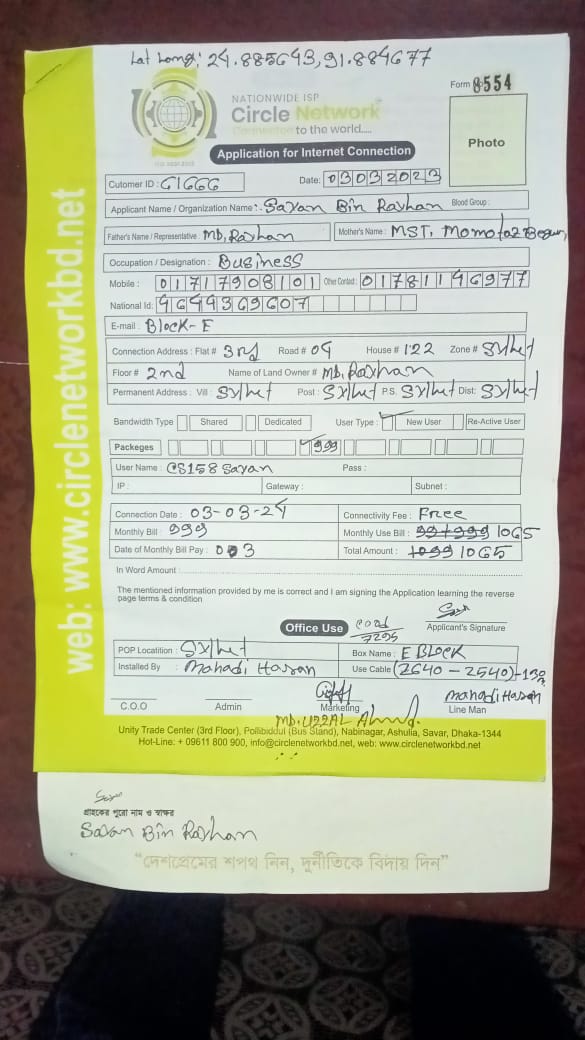 Lat Long: 24.885643,91.884677
NATIONWIDE ISP
Form 8554
Circle Network
Connected to the world....
Photo
Application for Internet Connection
Cutomer ID : C1666 Date: 03032023
Applicant Name / Organization Name : Sayan Bin Rayhan Blood Group :
Father's Name / Representative Md, Rayhan Mother's Name : MST, Momotaz Begum
Occupation / Designation : Business
Mobile : 01717908101 Other Contact : 01781146977
National Id: 4649369607
E-mail : Block-E
Connection Address : Flat # 3rd Road # 04 House # 122 Zone # Sylhet
Floor # 2nd Name of Land Owner # Md, Rayhan
Permanent Address : Vill : Sylhet Post : Sylhet P.S. Sylhet Dist: Sylhet
Bandwidth Type Shared Dedicated User Type : New User Re-Active User
Packeges 999
User Name : CS158 Sayan Pass :
IP : Gateway : Subnet :
Connection Date : 03-03-24 Connectivity Fee : Free
Monthly Bill : 999 Monthly Use Bill : 1065
Date of Monthly Bill Pay : 03 Total Amount : 1065
In Word Amount :
The mentioned information provided by me is correct and I am signing the Application learning the reverse
page terms & condition
Office Use Applicant's Signature
POP Locatition : Sylhet Box Name : E BLOCK
Installed By : Mahadi Hasan Use Cable (2640 - 2540)
mahadi Hasan
C.O.O Admin Marketing Line Man
Unity Trade Center (3rd Floor), Pollibiddut (Bus Stand), Nabinagar, Ashulia, Savar, Dhaka-1344
Hot-Line: + 09611 800 900, info@circlenetworkbd.net, web: www.circlenetworkbd.net
web: www.circlenetworkbd.net
গ্রাহকের পুরো নাম ও স্বাক্ষর
Sayan Bin Rayhan
“দেশপ্রেমের শপথ নিন, দুর্নীতিকে বিদায় দিন”